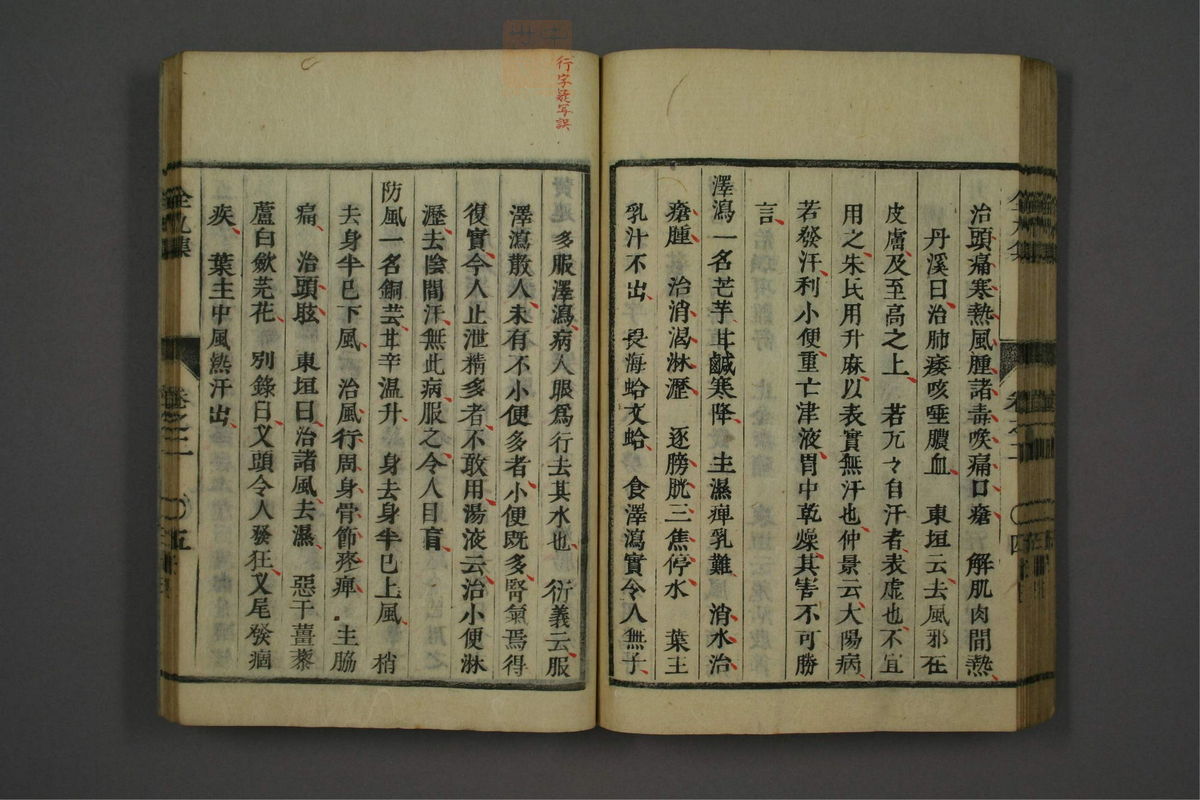 治頭痛寒熱風腫諸毒喉痛口瘡 解肌肉間熱
丹溪曰治肺痿咳唾膿血 東垣云去風邪在
皮膚及至高之上 若冗々自汗者表虛也不宜
用之朱氏用升麻以表實無汗也仲景云大陽病
若發汗利小便重亡津液胃中乾燥其害不可勝
言
澤瀉一名芒芋甘鹹寒降 主濕痺乳難 消水治
瘡腫 治消渴淋瀝 逐膀胱三焦停水 葉主
乳汁不出 畏海蛤文蛤 食澤瀉實令人無子
多服澤瀉病人眼爲行去其水也 衍義云服
澤瀉散人未有不小便多者小便既多腎氣焉得
復實今人止泄精多者不敢用湯液云治小便淋
瀝去陰間汗無此病服之令人目盲
防風一名銅芸甘辛溫升 身去身半已上風 梢
去身半已下風 治風行周身骨節疼痺 主脇
痛 治頭眩 東垣曰治諸風去濕 惡干薑藜
蘆白斂芫花 別錄曰叉頭令人發狂叉尾發痼
疾 葉主中風熱汗出
行字疑写誤
全九集
卷之二
〇四
全九集
卷之二
〇五